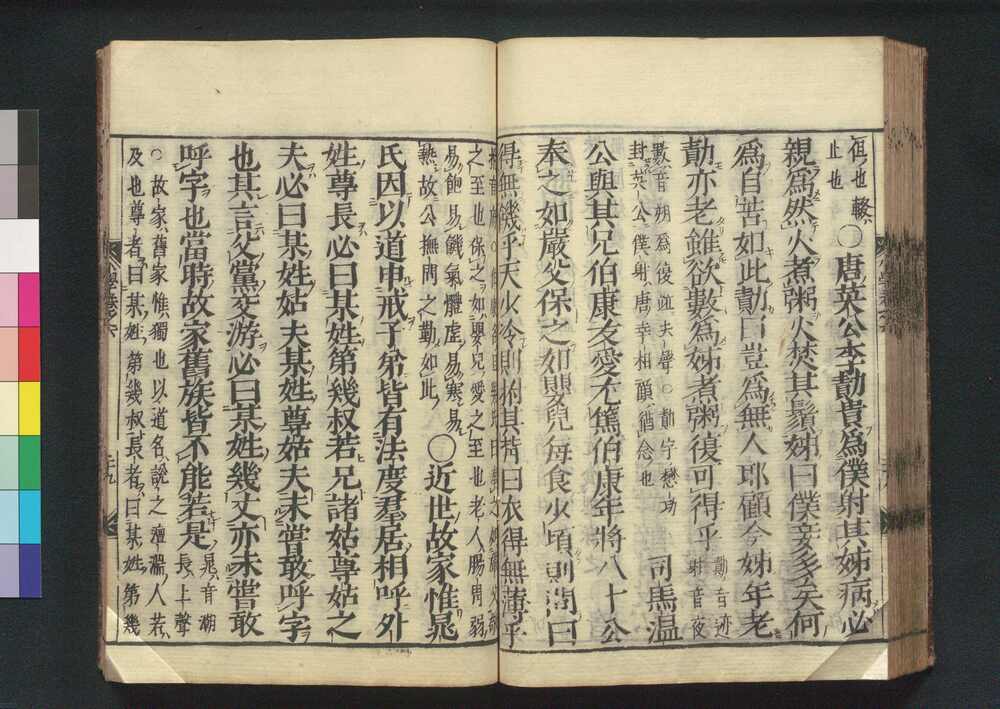 也輟
止也
○唐英公李勣貴爲僕射其姊病必
親爲然火煮粥火焚其鬚姊曰僕妾多矣何
爲自苦如此勣曰豈爲無人耶顧今姊年老
勣亦老雖欲數爲姊煮粥復可得乎
勣音迹
射音夜
數音朔爲後並去聲○勣字懋功
封英公僕射唐宰相顧猶念也
司馬温
公與其兄伯康友愛尤篤伯康年將八十公
奉之如嚴父保之如嬰兒每食少頃則問曰
得無饑乎天少冷則拊其背曰衣得無薄乎
之至也保之如嬰兒愛之至也老人腸胃弱
易飽易饑氣體虛易寒易
熱故公撫問之勤如此
○近世故家惟晁
氏因以道申戒子弟皆有法度羣居相呼外
姓尊長必曰某姓第幾叔若兄諸姑尊姑之
夫必曰某姓姑夫某姓尊姑夫未嘗敢呼字
也其言父黨交游必曰某姓幾丈亦未嘗敢
呼字也當時故家舊族皆不能若是
晁音潮
長上聲
○故家舊家惟獨也以道名說之澶淵人若
及也尊者曰某姓第幾叔長者曰某姓第幾
學卷六
二十九